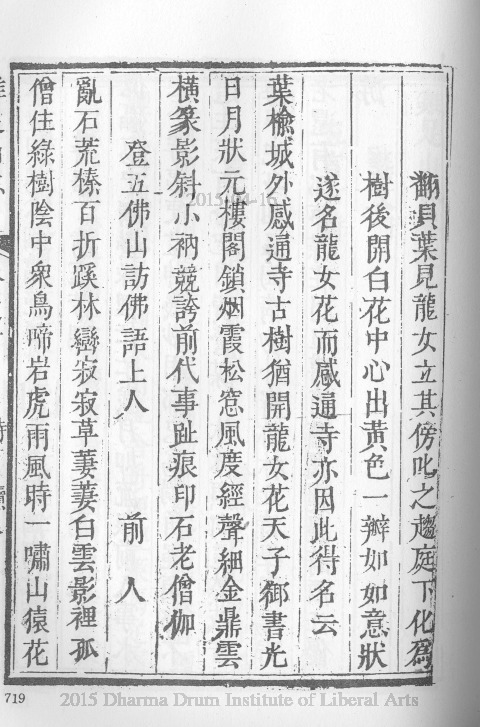 翻貝葉見龍女立其傍叱之趨庭下化為
樹後開白花中心出黃色一瓣如如意狀
遂名龍女花而感通寺亦因此得名云
葉榆城外感通寺古樹猶開龍女花天子御書光
日月狀元樓閣鎖烟霞松窓風度經聲細金鼎雲
橫篆影斜小衲競誇前代事趾痕印石老僧伽
登五佛山訪佛語上人 前人
亂石荒榛百折蹊林巒寂寂草萋萋白雲影裡孤
僧住綠樹陰中衆鳥啼岩虎雨風時一嘯山猿花
2015-04-16
719
2015 Dharma Drum Institute of Liberal Arts